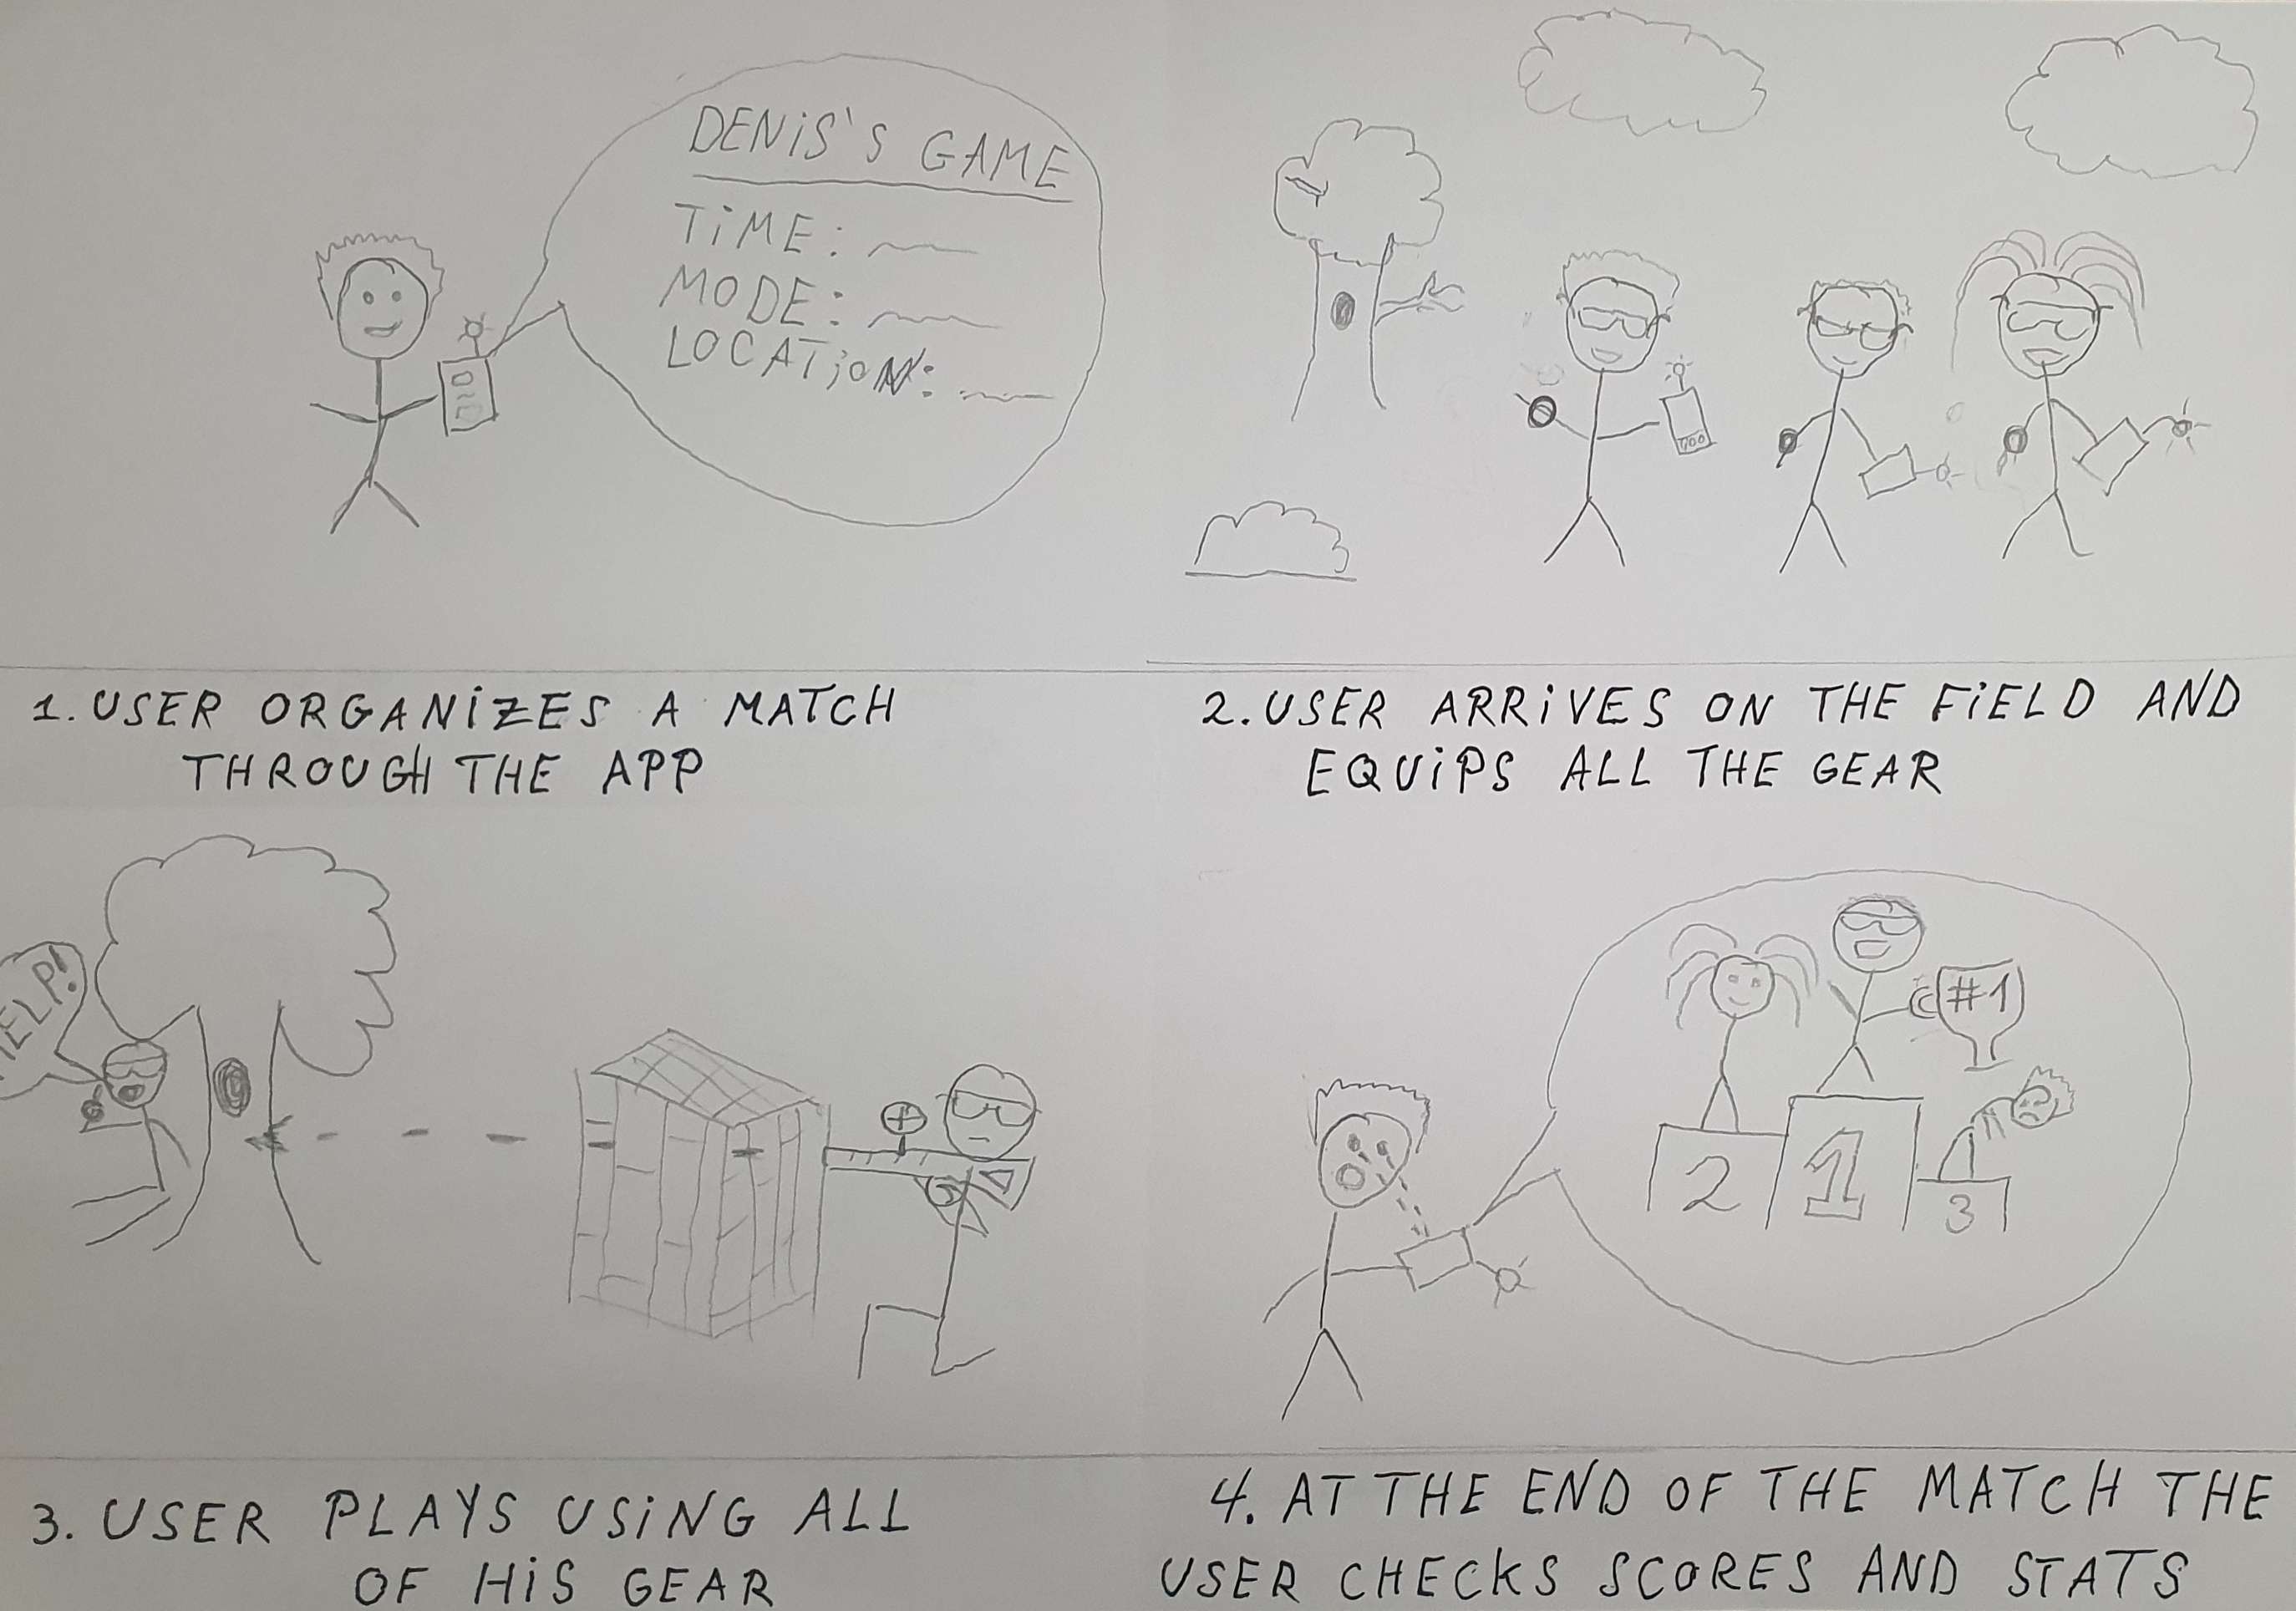 DENiS'S GAME
TiME:
MODE:
LOCATiON:
1. USER ORGANiZES A MATCH
THROUGH THE APP
2. USER ARRiVES ON THE FiELD AND
EQUiPS ALL THE GEAR
ELP!
#1
2 1 3
3. USER PLAYS USiNG ALL
OF HiS GEAR
4. AT THE END OF THE MATCH THE
USER CHECKS SCORES AND STATS